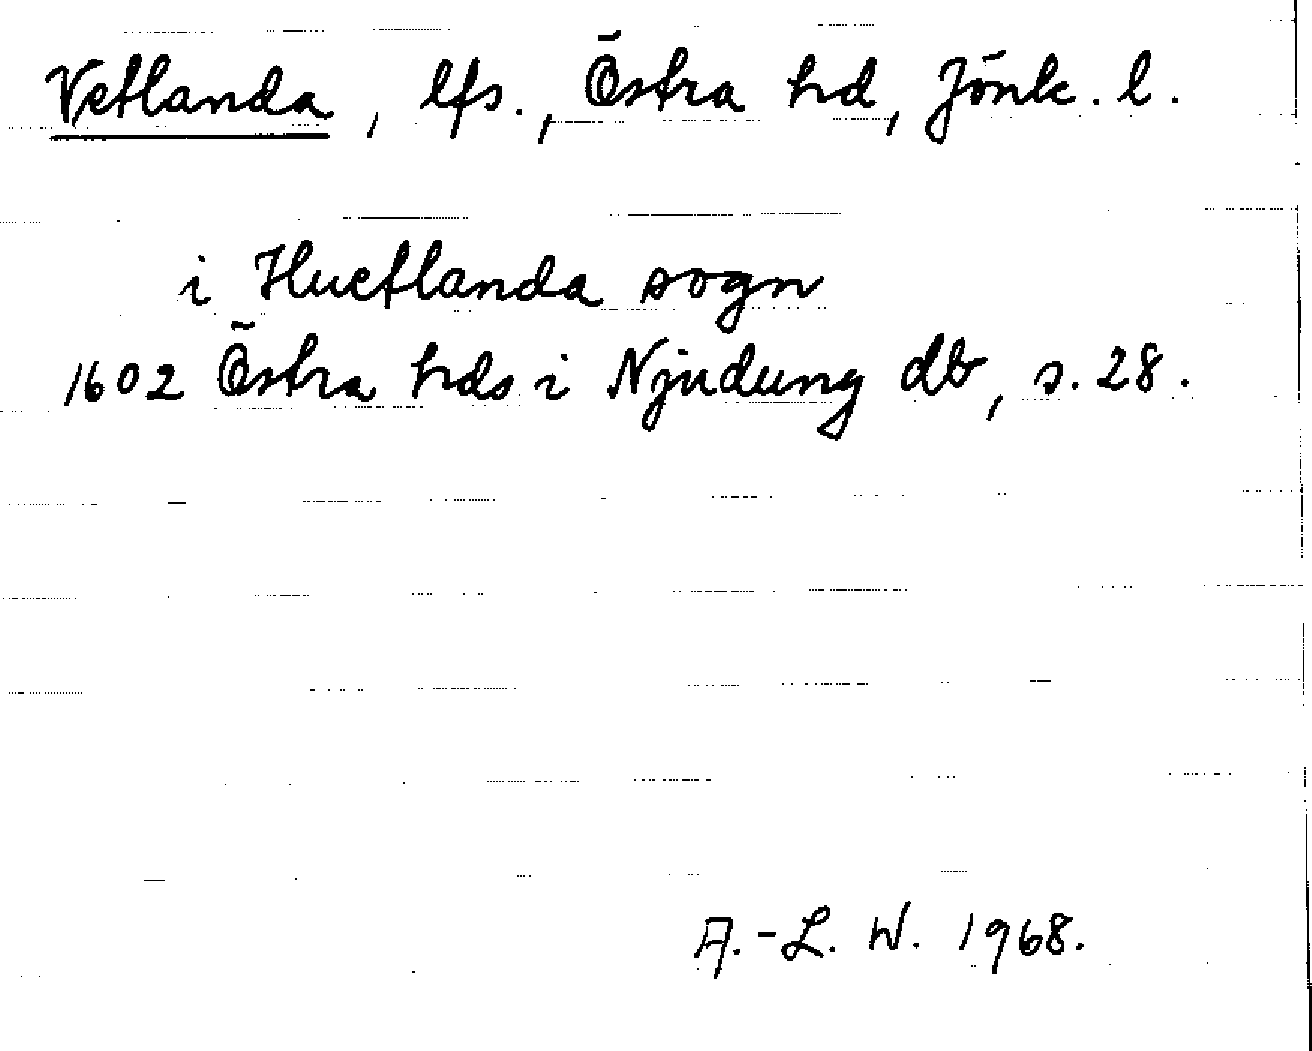 Vetlanda, lfs., Östra hd, Jönk. l.
i Huetlanda sogn
1602 Östra hds i Njudung db, s. 28.
A.-L. W. 1968.